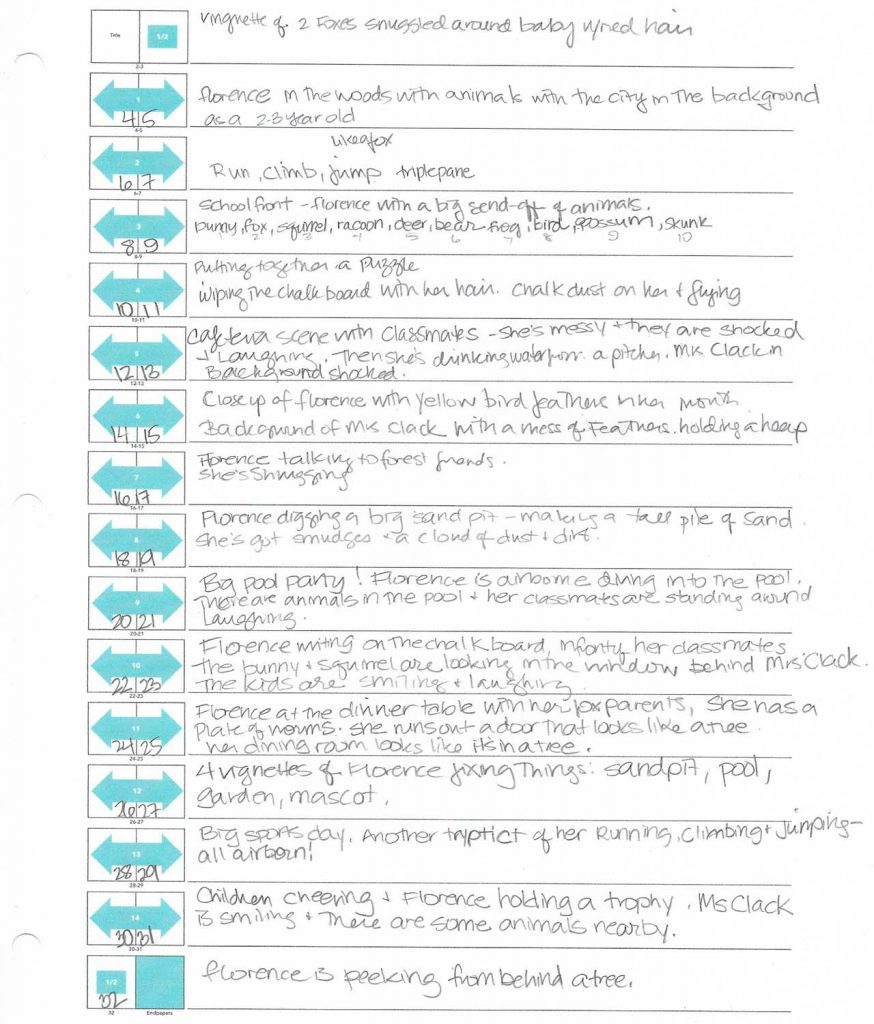 Title 1/2 vingnette of 2 Foxes snuggled around baby w/red hair
2-3
1 florence in the woods with animals with the city in the background
4|5 as a 2-3 year old
4-5
like a fox
2 Run, climb, jump triplepane
6|7
6-7
School front - florence with a big send-off of animals.
3 bunny, fox, squirrel, racoon, deer, bear, frog, bird, possum, skunk
8|9 2 3 4 5 6 7 8 9 10
8-9
Putting together a puzzle
4 wiping the chalk board with her hair. Chalk dust on her + flying
10|11
10-11
Cafeteria scene with classmates - she's messy + they are shocked
5 + Laughing. Then she's drinking water from a pitcher. Mrs Clack in
12|13 Background shocked.
12-13
Close up of florence with yellow bird feathers in her mouth.
6 Background of Mrs Clack with a mess of Feathers. holding a heap
14|15
14-15
Florence talking to forest friends.
7 She's Shrugging
16|17
16-17
Florence digging a big sand pit - making a tall pile of sand.
8 She's got smudges + a cloud of dust + dirt.
18|19
18-19
Big pool party! Florence is airborne diving into the pool.
9 There are animals in the pool + her classmates are standing around
20|21 Laughing.
20-21
Florence writing on the chalk board, in front of her classmates
10 The bunny + squirrel are looking in the window behind Mrs Clack.
22|23 The kids are smiling + laughing.
22-23
Florence at the dinner table with her fox parents, she has a
11 Plate of worms. She runs out a door that looks like a tree.
24|25 her dining room looks like it's in a tree.
24-25
4 vignettes of Florence fixing Things: sandpit, pool,
12 garden, mascot.
26|27
26-27
Big sports day. Another tryptict of her Running, Climbing + Jumping-
13 all airborn!
28|29
28-29
Children cheering + Florence holding a trophy. Ms Clack
14 is smiling + There are some animals nearby.
30|31
30-31
1/2 florence is peeking from behind a tree.
32
32 Endpapers